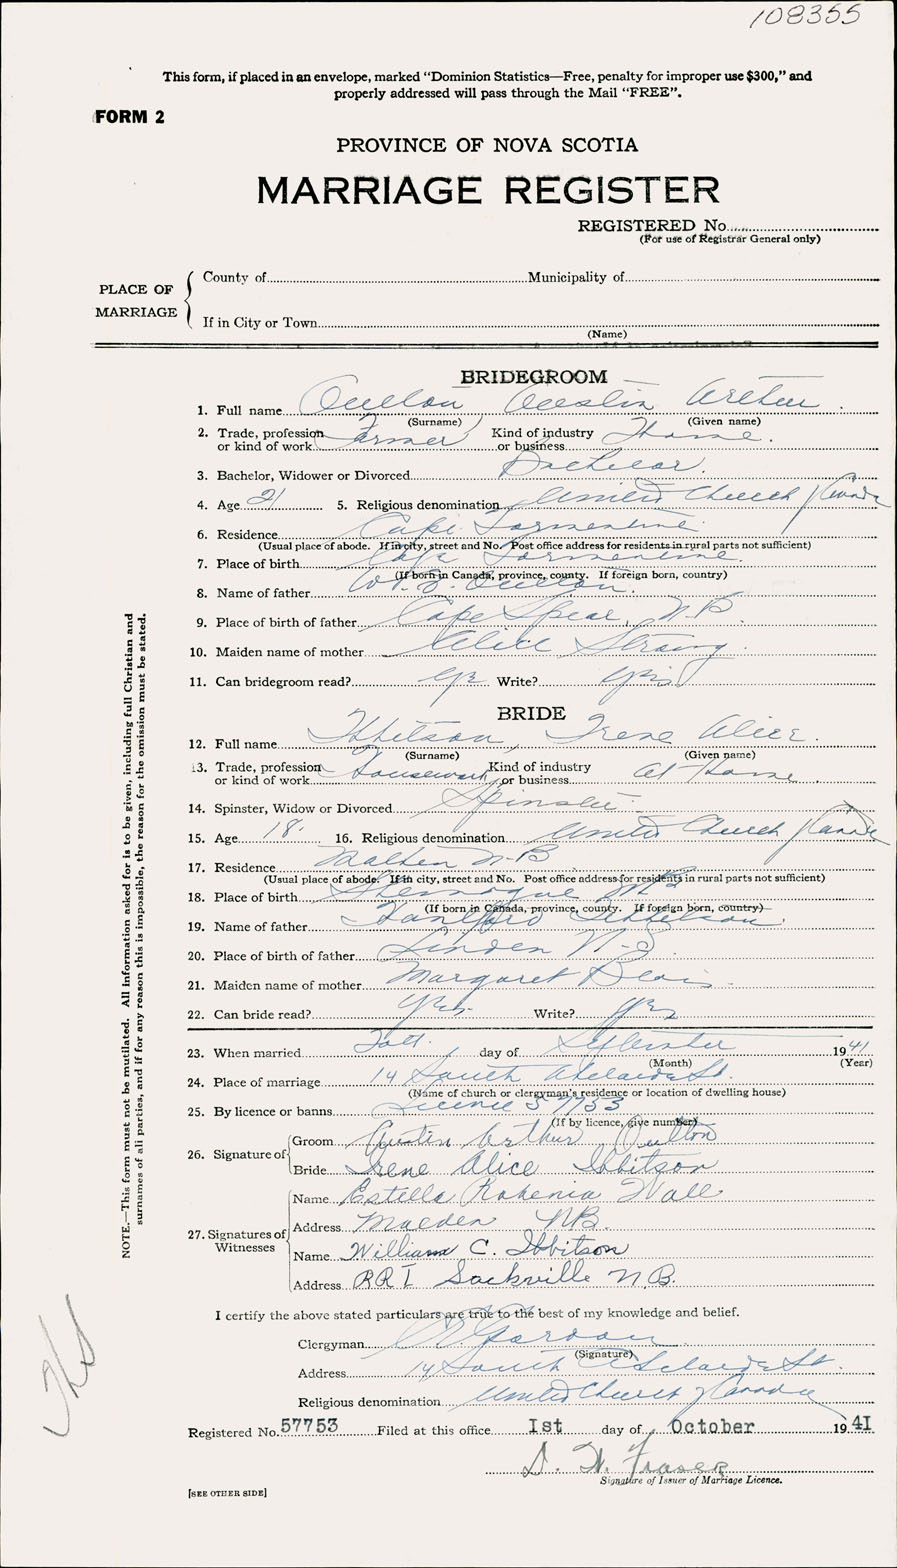 108355
This form, if placed in an envelope, marked “Dominion Statistics—Free, penalty for improper use $300,” and
properly addressed will pass through the Mail “FREE”.
FORM 2
PROVINCE OF NOVA SCOTIA
MARRIAGE REGISTER
REGISTERED No.
(For use of Registrar General only)
PLACE OF MARRIAGE
County of Municipality of
If in City or Town
(Name)
BRIDEGROOM
1. Full name Oulton Austin Arthur
(Surname) (Given name)
2. Trade, profession or kind of work Farmer Kind of industry or business Home.
3. Bachelor, Widower or Divorced Bachelor.
4. Age 21 5. Religious denomination United Church of Canada
6. Residence Cape Tormentine.
(Usual place of abode. If in city, street and No. Post office address for residents in rural parts not sufficient)
7. Place of birth Cape Tormentine.
(If born in Canada, province, county. If foreign born, country)
8. Name of father Oulton.
9. Place of birth of father Cape Spear, N.B.
10. Maiden name of mother Alice Strang.
11. Can bridegroom read? yes Write? yes
BRIDE
12. Full name Ibbitson, Irene Alice.
(Surname) (Given name)
13. Trade, profession or kind of work Housework Kind of industry or business at Home
14. Spinster, Widow or Divorced Spinster.
15. Age 18. 16. Religious denomination United Church of Canada
17. Residence Malden N-B
(Usual place of abode. If in city, street and No. Post office address for residents in rural parts not sufficient)
18. Place of birth Shemogue NB
(If born in Canada, province, county. If foreign born, country)
19. Name of father Ibbitson.
20. Place of birth of father Linden N-S
21. Maiden name of mother Margaret
22. Can bride read? Yes. Write? yes
23. When married day of September 1941
(Month) (Year)
24. Place of marriage 14 South Adelaide St.
(Name of church or clergyman's residence or location of dwelling house)
25. By licence or banns Licence 57753
(If by licence, give number)
26. Signature of
Groom Austin Arthur Oulton
Bride Irene Alice Ibbitson
27. Signatures of Witnesses
Name Estella Rohenia Wall
Address Malden NB.
Name William C. Ibbitson
Address RR1 Sackville N.B.
I certify the above stated particulars are true to the best of my knowledge and belief.
Clergyman Gordon
(Signature)
Address 14 South Adelaide St.
Religious denomination United Church of Canada
Registered No. 57753 Filed at this office 1st day of October 1941
D. W. Fraser
Signature of Issuer of Marriage Licence.
[SEE OTHER SIDE]
NOTE.—This form must not be mutilated. All information asked for is to be given, including full Christian and
surnames of all parties, and if for any reason this is impossible, the reason for the omission must be stated.